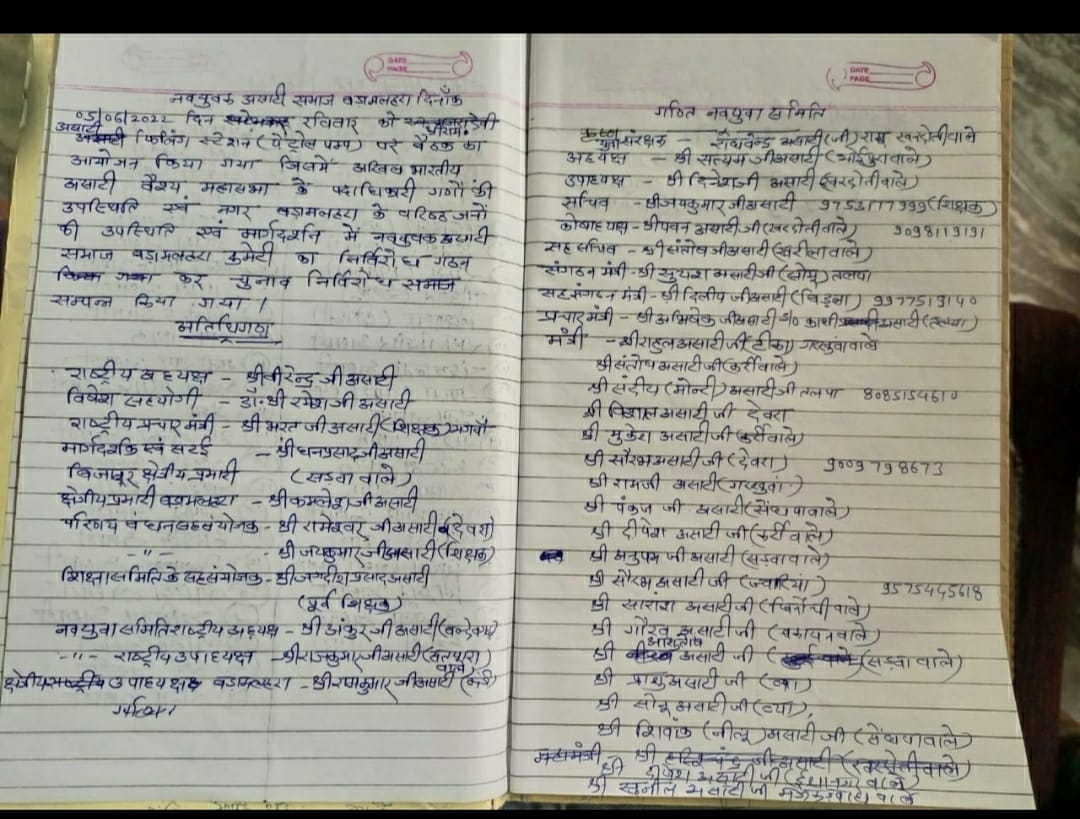 DATE
PAGE
नवयुवक असाटी समाज बड़ामलहरा दिनाँक
05/06/2022 दिन रविवार को
असाटी फिलिंग स्टेशन (पेट्रोल पम्प) पर बैठक का
आयोजन किया गया जिसमें अखिल भारतीय
असाटी वैश्य महासभा के पदाधिकारी गणों की
उपस्थिति एवं नगर बड़ामलहरा के वरिष्ठ जनों
की उपस्थिति एवं मार्गदर्शन में नवयुवक असाटी
समाज बड़ामलहरा कमेटी का निर्विरोध गठन
कर चुनाव निर्विरोध
सम्पन्न किया गया।
अतिथिगण
राष्ट्रीय अध्यक्ष - श्री वीरेन्द्र जी असाटी
विशेष सहयोगी - डॉ. श्री रमेश जी असाटी
राष्ट्रीय प्रचार मंत्री - श्री भरत जी असाटी (शिक्षक)
मार्गदर्शक एवं - श्री धनप्रसाद जी असाटी
बिजावर क्षेत्रीय प्रभारी (सड़वा वाले)
क्षेत्रीय प्रभारी बड़ामलहरा - श्री कमलेश जी असाटी
परिणय बंधन सहसंयोजक - श्री रामेश्वर जी असाटी (देवरा)
-"- - श्री जयकुमार जी असाटी (शिक्षक)
शिक्षा समिति के सहसंयोजक - श्री जगदीश प्रसाद असाटी
(पूर्व शिक्षक)
नवयुवा समिति राष्ट्रीय अध्यक्ष - श्री अंकुर जी असाटी
-"- राष्ट्रीय उपाध्यक्ष - श्री राजकुमार जी असाटी (सतपारा वाले)
क्षेत्रीय उपाध्यक्ष बड़ामलहरा - श्री रामकुमार जी असाटी
DATE
PAGE
गठित नवयुवा समिति
संरक्षक - राघवेन्द्र असाटी (जी) राजू खरदोतीवाले
अध्यक्ष - श्री सत्यम जी असाटी
उपाध्यक्ष - श्री दिनेश जी असाटी (खरदोतीवाले)
सचिव - श्री जयकुमार जी असाटी 9753177999 (शिक्षक)
कोषाध्यक्ष - श्री पवन असाटी जी (खरदोतीवाले) 9098119191
सह सचिव - श्री संतोष जी असाटी (खरीला वाले)
संगठन मंत्री - श्री सुयश असाटी जी (छोटू) तलपा
सह संगठन मंत्री - श्री दिलीप जी असाटी (बिड़ला) 9977519140
प्रचार मंत्री - श्री अभिषेक जी असाटी S/o काशी असाटी (तलपा)
मंत्री - श्री राहुल असाटी जी (टीका) गरखुवां वाले
श्री संतोष असाटी जी (कर्री वाले)
श्री संदीप (मोन्टी) असाटी जी तलपा 8085154610
श्री विशाल असाटी जी देवरा
श्री मुकेश असाटी जी (कर्री वाले)
श्री सौरभ असाटी जी (देवरा) 9009798673
श्री रामजी असाटी (गरखुवां)
श्री पंकज जी असाटी (सेंधपा वाले)
श्री दीपेश असाटी जी (कर्री वाले)
श्री अनुपम जी असाटी (सड़वा वाले)
श्री सौरभ असाटी जी (ज्वारिया) 9575445618
श्री सारांश असाटी जी
श्री गौरव असाटी जी (बकायन वाले)
श्री आशुतोष असाटी जी (सड़वा वाले)
श्री प्रांशु असाटी जी
श्री सोनू असाटी जी
श्री शिवांक (नीलू) असाटी जी (सेंधपा वाले)
महामंत्री श्री जी असाटी (खरदोतीवाले)
श्री दीपेश असाटी जी (ईशानगर वाले)
श्री सुनील असाटी जी वाले